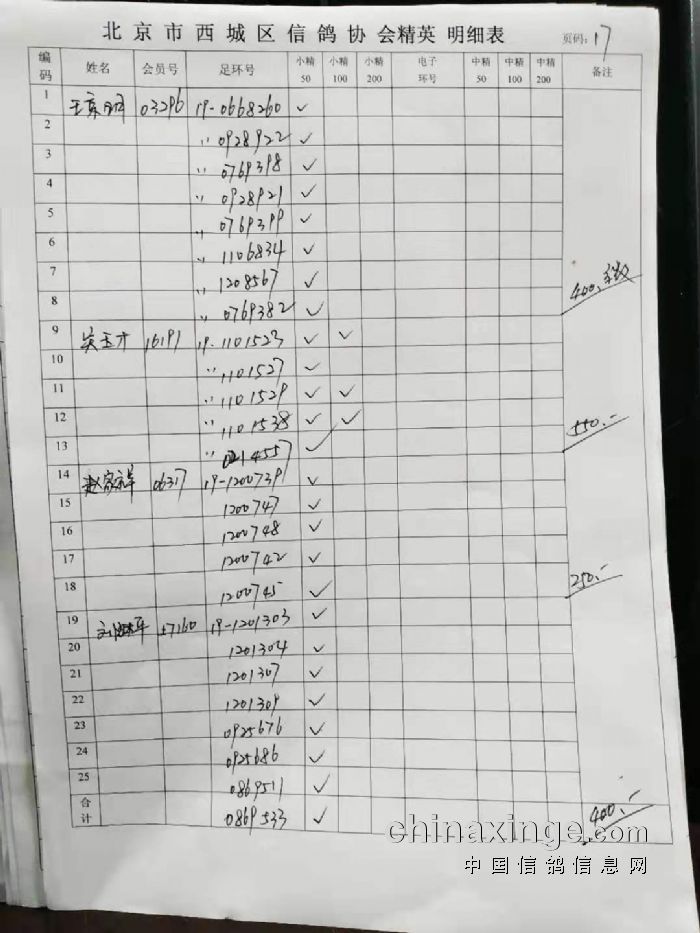 北京市西城区信鸽协会精英 明细表 页码: 17
编码 姓名 会员号 足环号 小精50 小精100 小精200 电子环号 中精50 中精100 中精200 备注
1 03296 19-0668260 ✓
2 〃 0928922 ✓
3 〃 0769398 ✓
4 〃 0928921 ✓
5 〃 0769399 ✓
6 〃 1106834 ✓
7 〃 1208567 ✓ 400.
8 〃 0769382 ✓
9 吴玉才 16191 19-1101523 ✓ ✓
10 〃 1101527 ✓
11 〃 1101529 ✓ ✓
12 〃 1101538 ✓ ✓ 550.-
13 〃 ✓
14 06317 19-1200739 ✓
15 1200747 ✓
16 1200748 ✓
17 1200742 ✓
18 1200745 ✓ 250.-
19 17160 19-1201303 ✓
20 1201304 ✓
21 1201307 ✓
22 1201309 ✓
23 0925676 ✓
24 0925686 ✓
25 0869511 ✓
合计 0869533 ✓ 400.-
chinaxinge.com
中国信鸽信息网